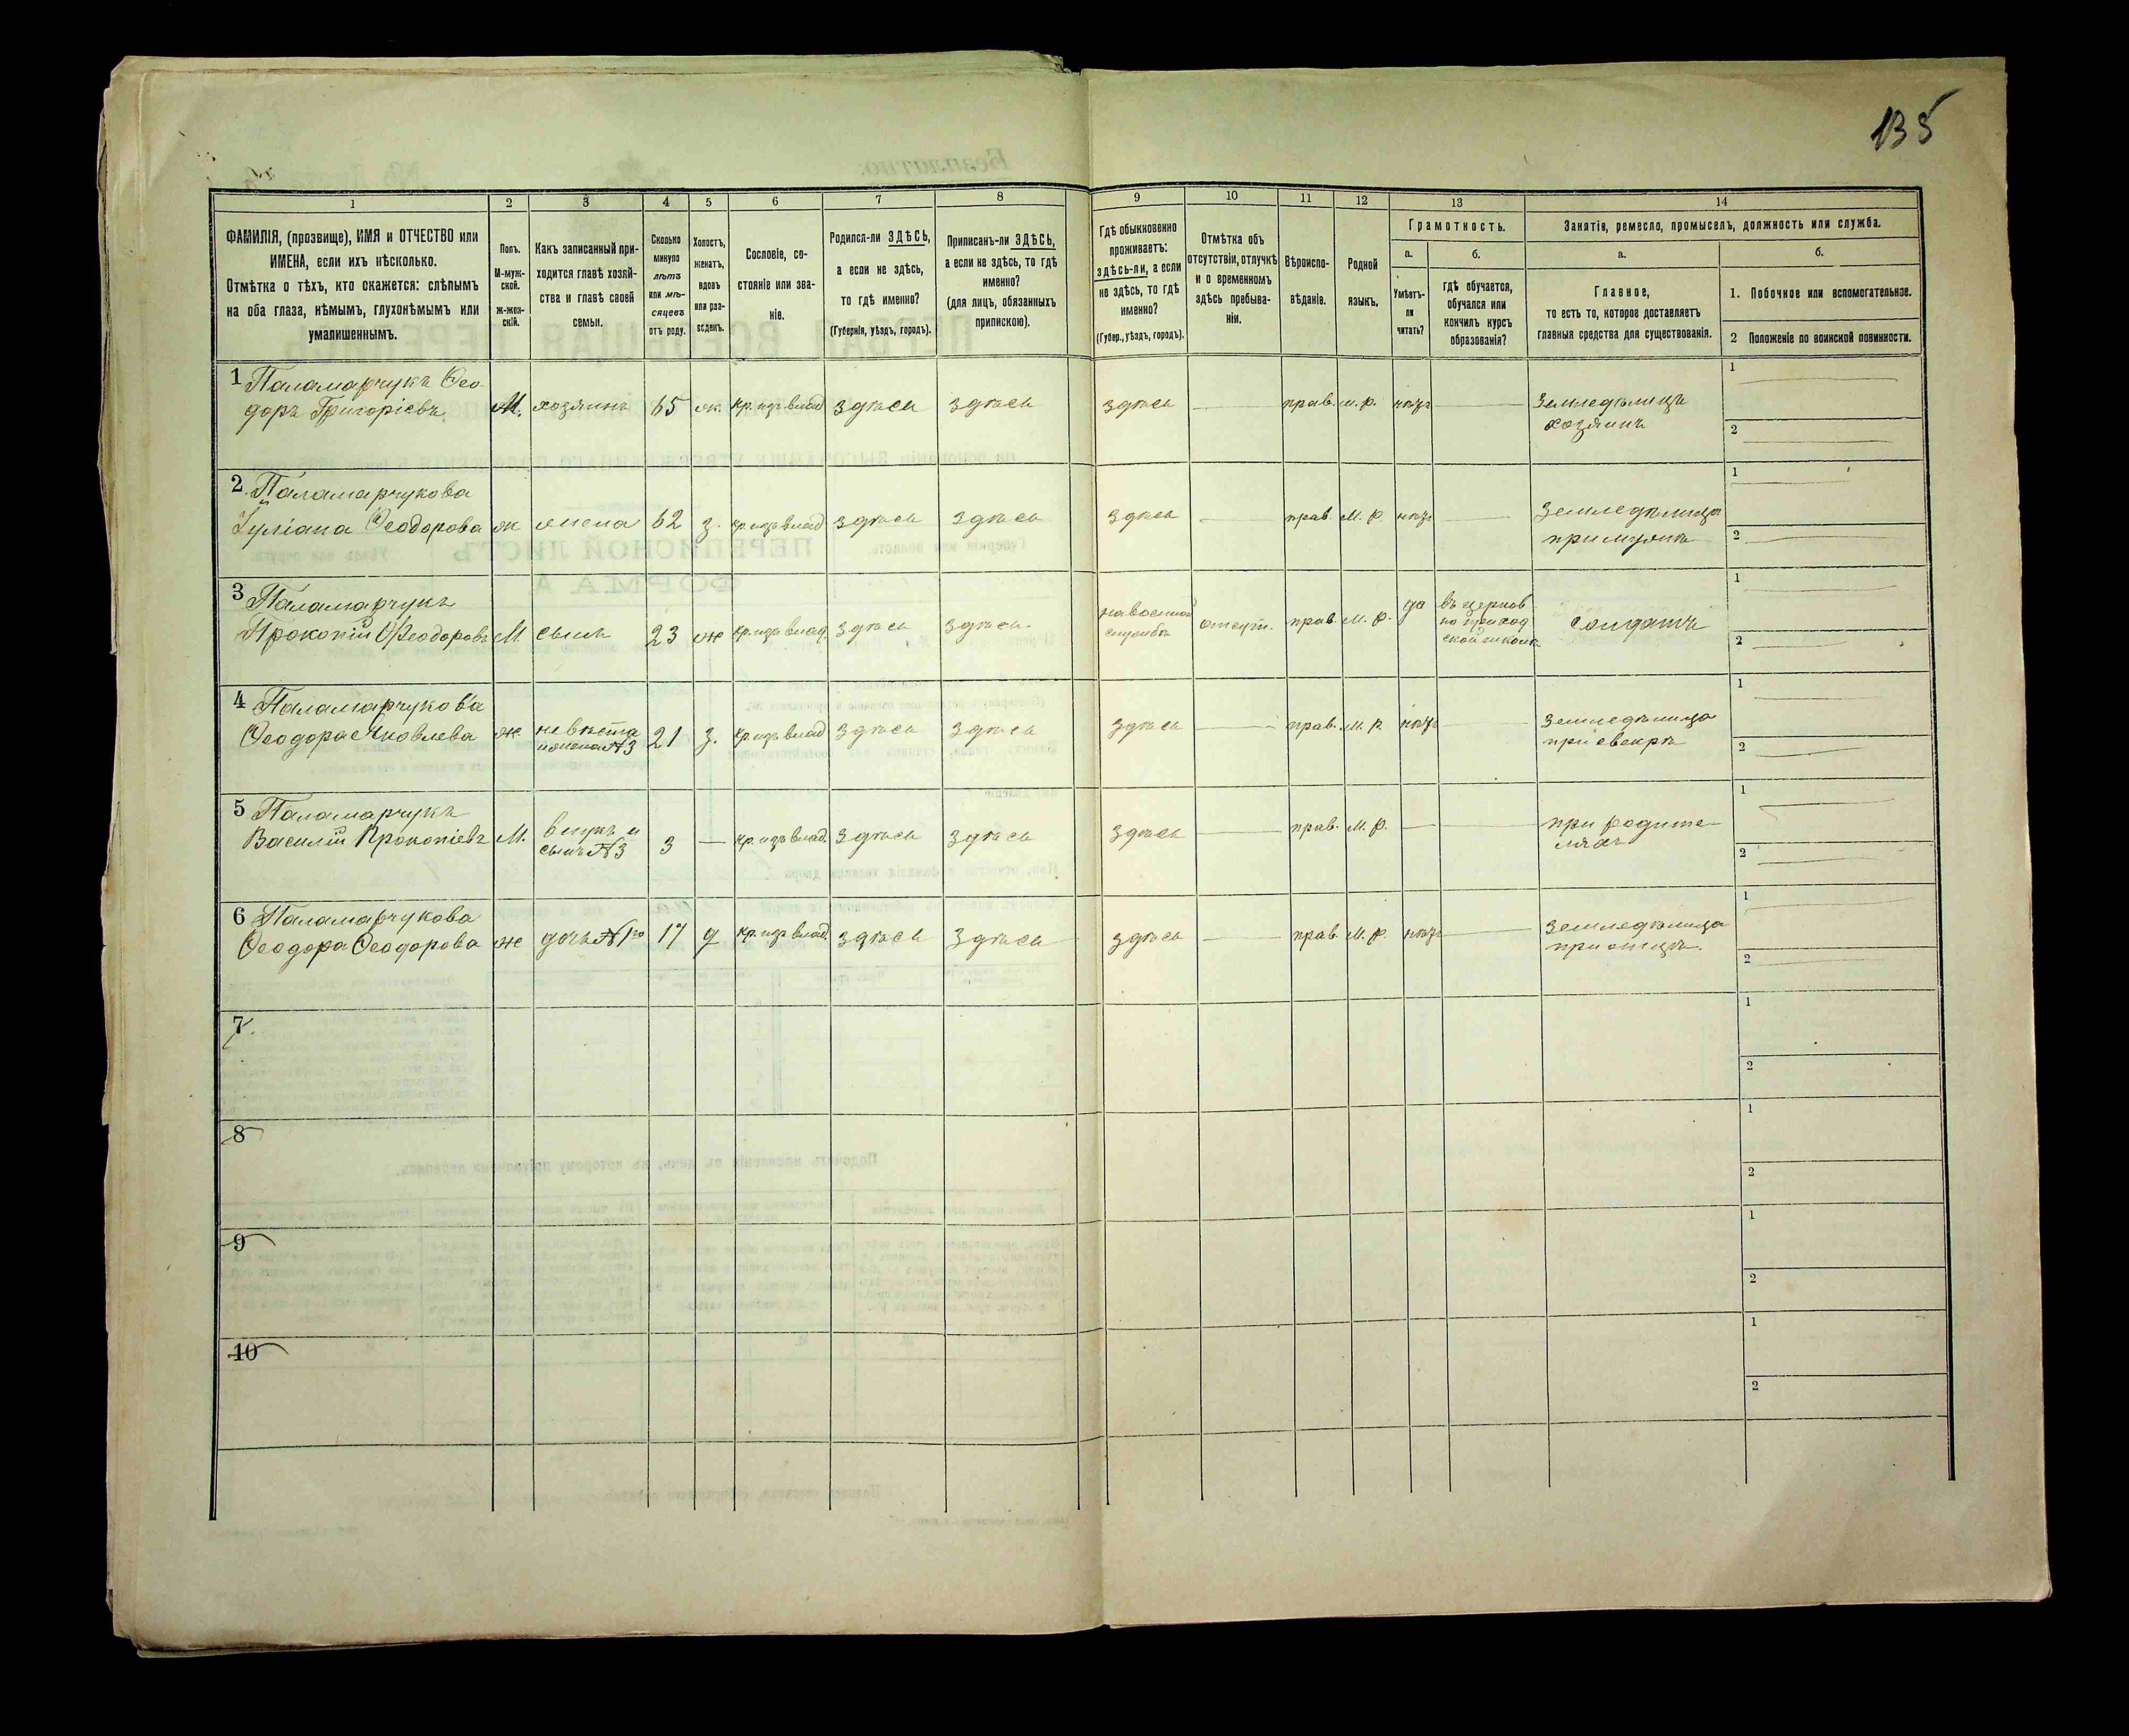 135
1 2 3 4 5 6 7 8 9 10 11 12 13 14
ФАМИЛІЯ, (прозвище), ИМЯ и ОТЧЕСТВО или
ИМЕНА, если ихъ нѣсколько.
Отмѣтка о тѣхъ, кто окажется: слѣпымъ
на оба глаза, нѣмымъ, глухонѣмымъ или
умалишеннымъ.
Полъ.
М-муж-
ской.
ж-жен-
скій.
Какъ записанный при-
ходится главѣ хозяй-
ства и главѣ своей
семьи.
Сколько
минуло
лѣтъ
или мѣ-
сяцевъ
отъ роду.
Холостъ,
женатъ,
вдовъ
или раз-
веденъ.
Сословіе, со-
стояніе или зва-
ніе.
Родился-ли ЗДѢСЬ,
а если не здѣсь,
то гдѣ именно?
(Губернія, уѣздъ, городъ).
Приписанъ-ли ЗДѢСЬ,
а если не здѣсь, то гдѣ
именно?
(для лицъ, обязанныхъ
припискою).
Гдѣ обыкновенно
проживаетъ:
здѣсь-ли, а если
не здѣсь, то гдѣ
именно?
(Губер., уѣздъ, городъ).
Отмѣтка объ
отсутствіи, отлучкѣ
и о временномъ
здѣсь пребыва-
ніи.
Вѣроиспо-
вѣданіе.
Родной
языкъ.
Грамотность.
а.
Умѣетъ-
ли
читать?
б.
гдѣ обучается,
обучался или
кончилъ курсъ
образованія?
Занятіе, ремесло, промыселъ, должность или служба.
а.
Главное,
то есть то, которое доставляетъ
главныя средства для существованія.
б.
1. Побочное или вспомогательное.
2 Положеніе по воинской повинности.
1 Паламарчукъ Ѳео-
доръ Григоріевъ М. хозяинъ 65 ж. кр. изъ влад здѣсь здѣсь здѣсь прав. м. р. нѣтъ Земледѣлецъ
хозяинъ
1
2
2 Паламарчукова
Іуліана Ѳеодорова ж жена 62 з. кр. изъ влад здѣсь здѣсь здѣсь прав. М. р. нѣтъ Земледѣлица
при мужѣ
1
2
3 Паламарчукъ
Прокопій Ѳеодоровъ М сынъ 23 ж кр. изъ влад здѣсь здѣсь на военной
службѣ отсут. прав М. р. да въ церков
но приход
ской школѣ солдатъ
1
2
4 Паламарчукова
Ѳеодора Яковлева ж невѣста
и жена №3 21 з. кр изъ влад здѣсь здѣсь здѣсь прав. М. р. нѣтъ земледѣлица
при свекрѣ
1
2
5 Паламарчукъ
Василій Прокопіевъ М. внукъ и
сынъ №3 3 — кр. изъ влад. здѣсь здѣсь здѣсь прав. М. р. при родите-
ляхъ
1
2
6 Паламарчукова
Ѳеодора Ѳеодорова ж дочь №1го 17 д кр. изъ влад. здѣсь здѣсь здѣсь прав. М. р. нѣтъ земледѣлица
при отцѣ.
1
2
7
1
2
8
1
2
9
1
2
10
1
2